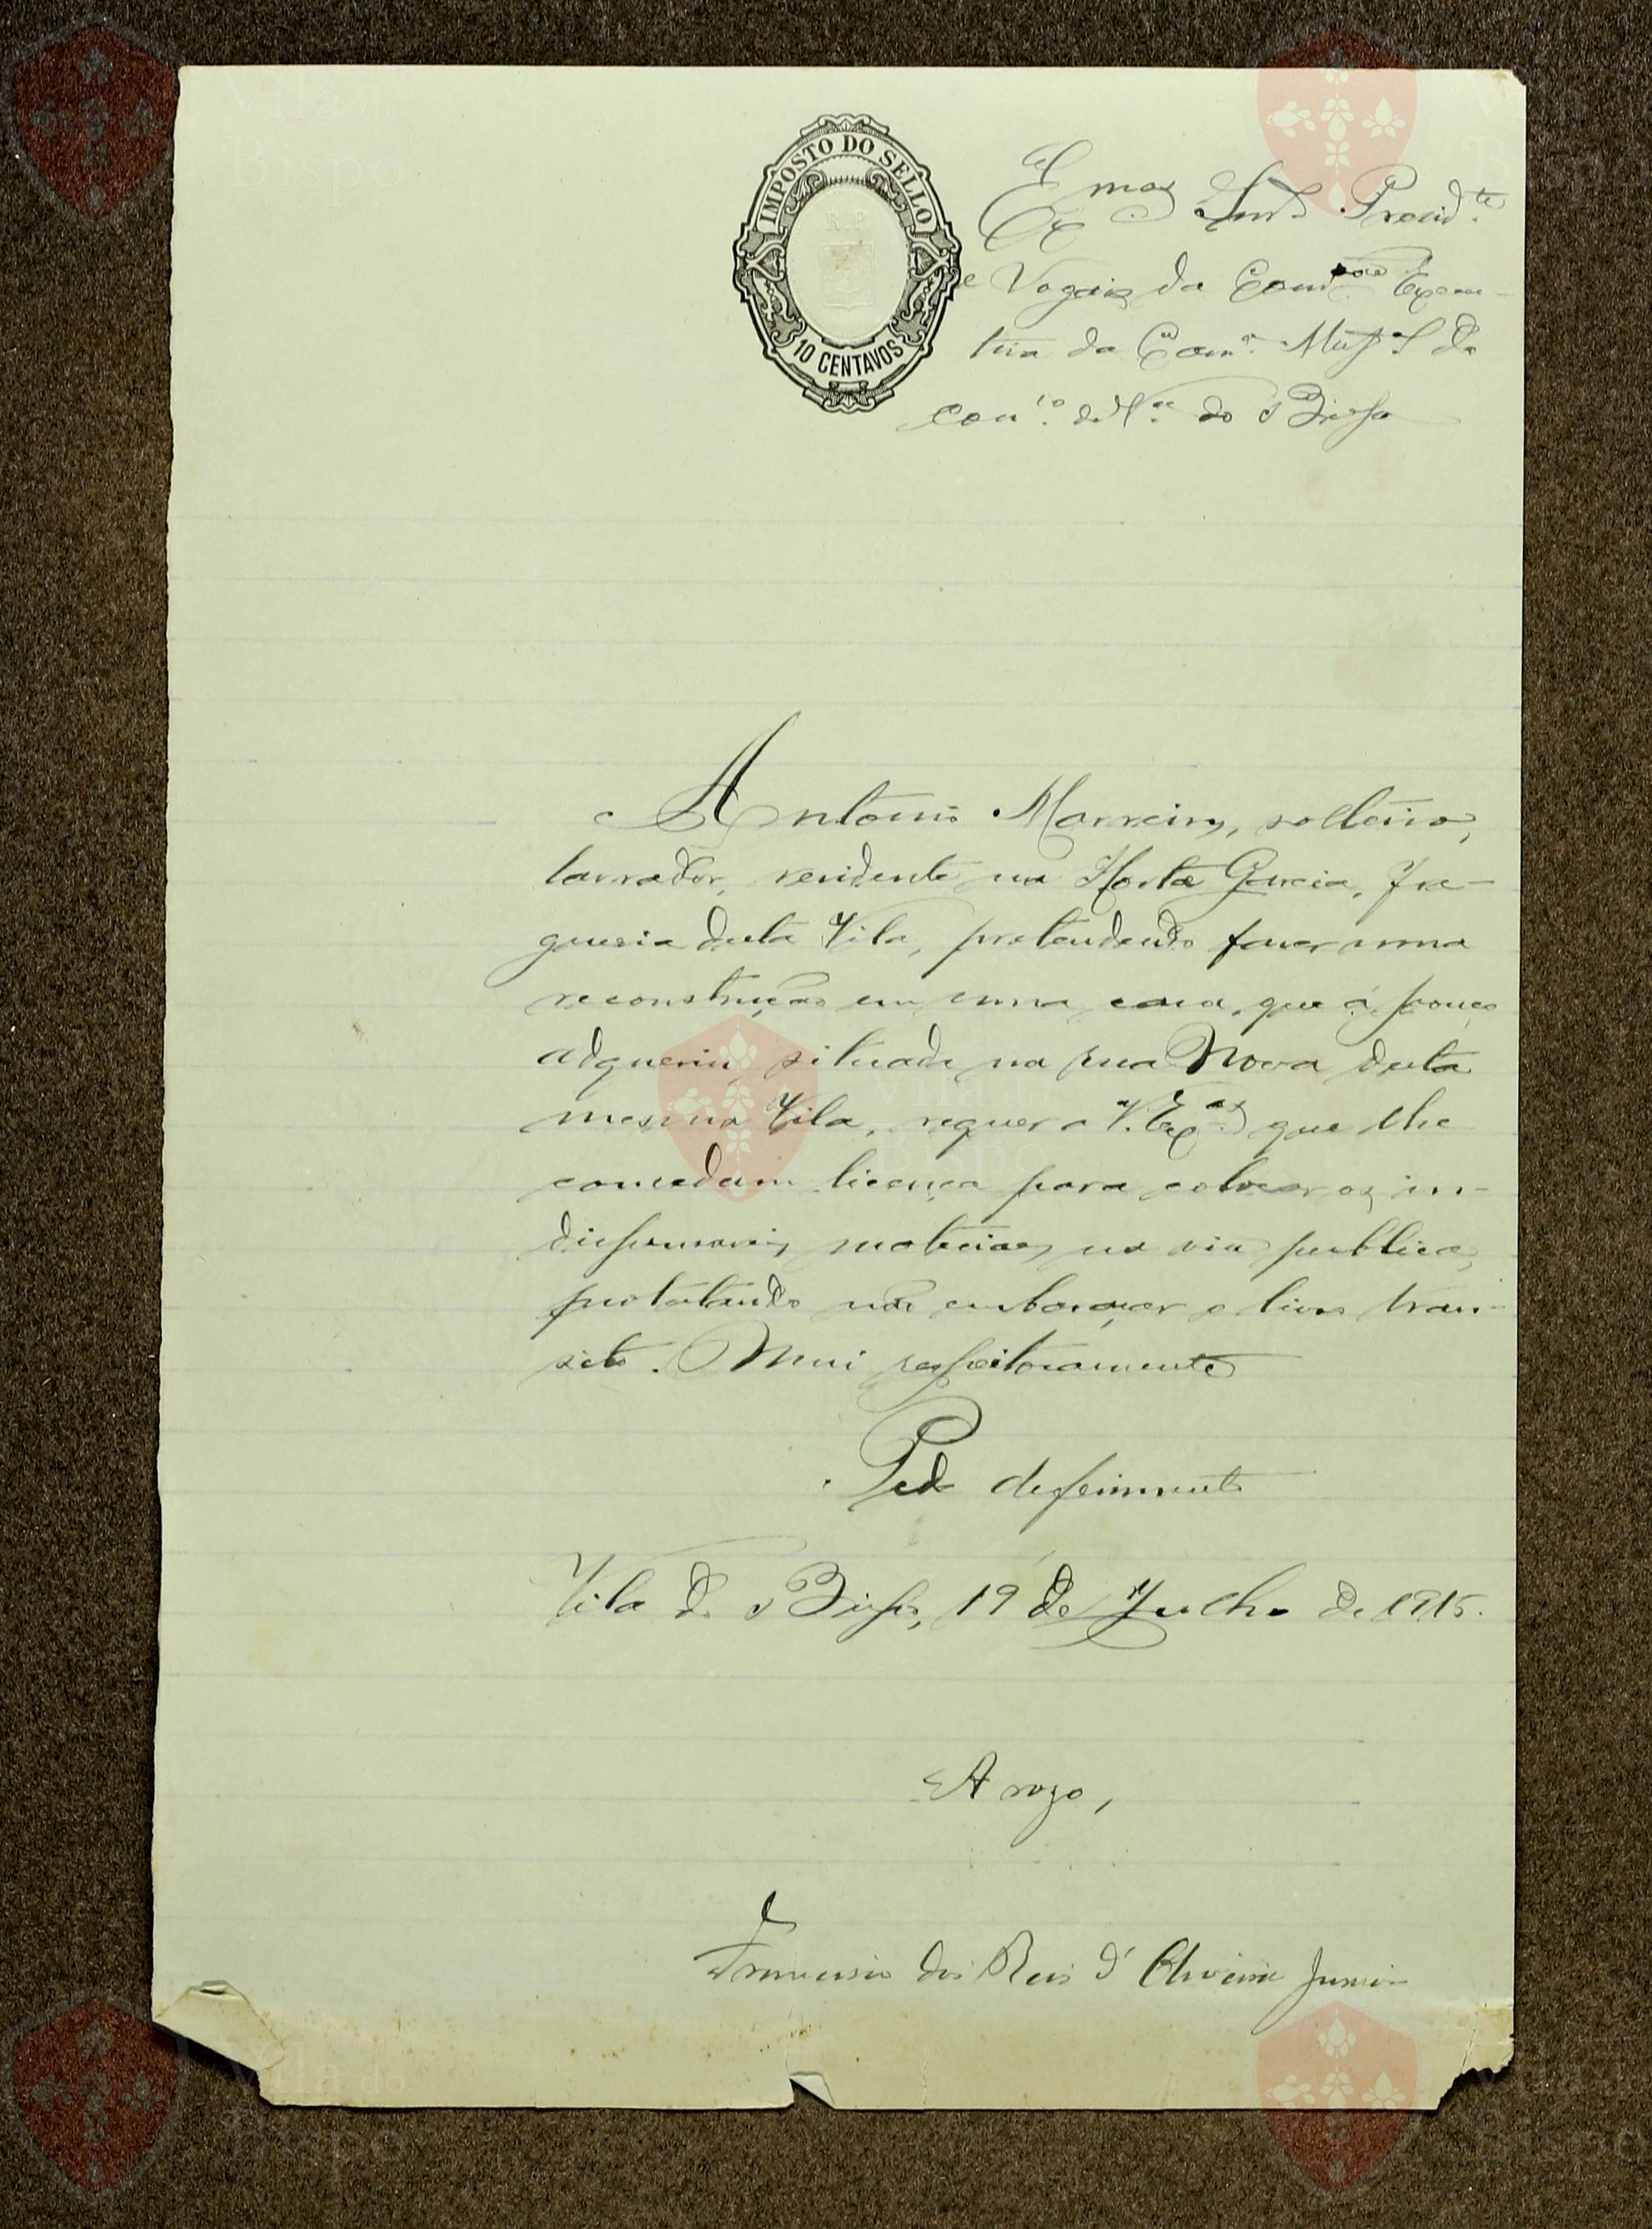 IMPOSTO DO SELLO
10 CENTAVOS
Ex.mos Snr.s Presid.te
e Vogais da Com.são Execu-
tiva da Cam.a Mu.al do
con.lo de V.a do Bispo
Antonio Marreiros, solteiro,
lavrador, residente na Horta Garcia, fre-
guesia desta Vila, pretendendo fazer uma
reconstrução em uma casa, que á pouco
adqueriu, situada na rua Nova desta
mesma Vila, requer a V. Ex.as que lhe
concedam licença para colocar os in-
dispensaveis materiaes na via publica,
protestando não embaraçar o livre tran-
sito. Mui respeitosamente
Pede deferimento
Vila do Bispo, 19 de Julho de 1915.
A rogo,
Francisco dos Reis d'Oliveira Junior
Vila do
Bispo